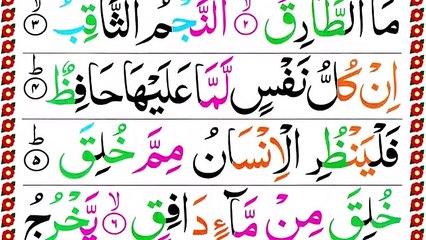 مَا الطَّارِقُ ۙ‏﴿۲﴾ النَّجْمُ الثَّاقِبُ ۙ‏﴿۳﴾
اِنْ كُلُّ نَفْسٍ لَّمَّا عَلَيْهَا حَافِظٌ ؕ‏﴿۴﴾
فَلْيَنْظُرِ الْاِنْسَانُ مِمَّ خُلِقَ ؕ‏﴿۵﴾
خُلِقَ مِنْ مَّآءٍ دَافِقٍ ۙ‏﴿۶﴾ يَّخْرُجُ